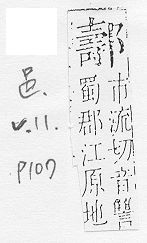 𨞪
市流切音讐
蜀郡江原地
邑.
v.11.
p107